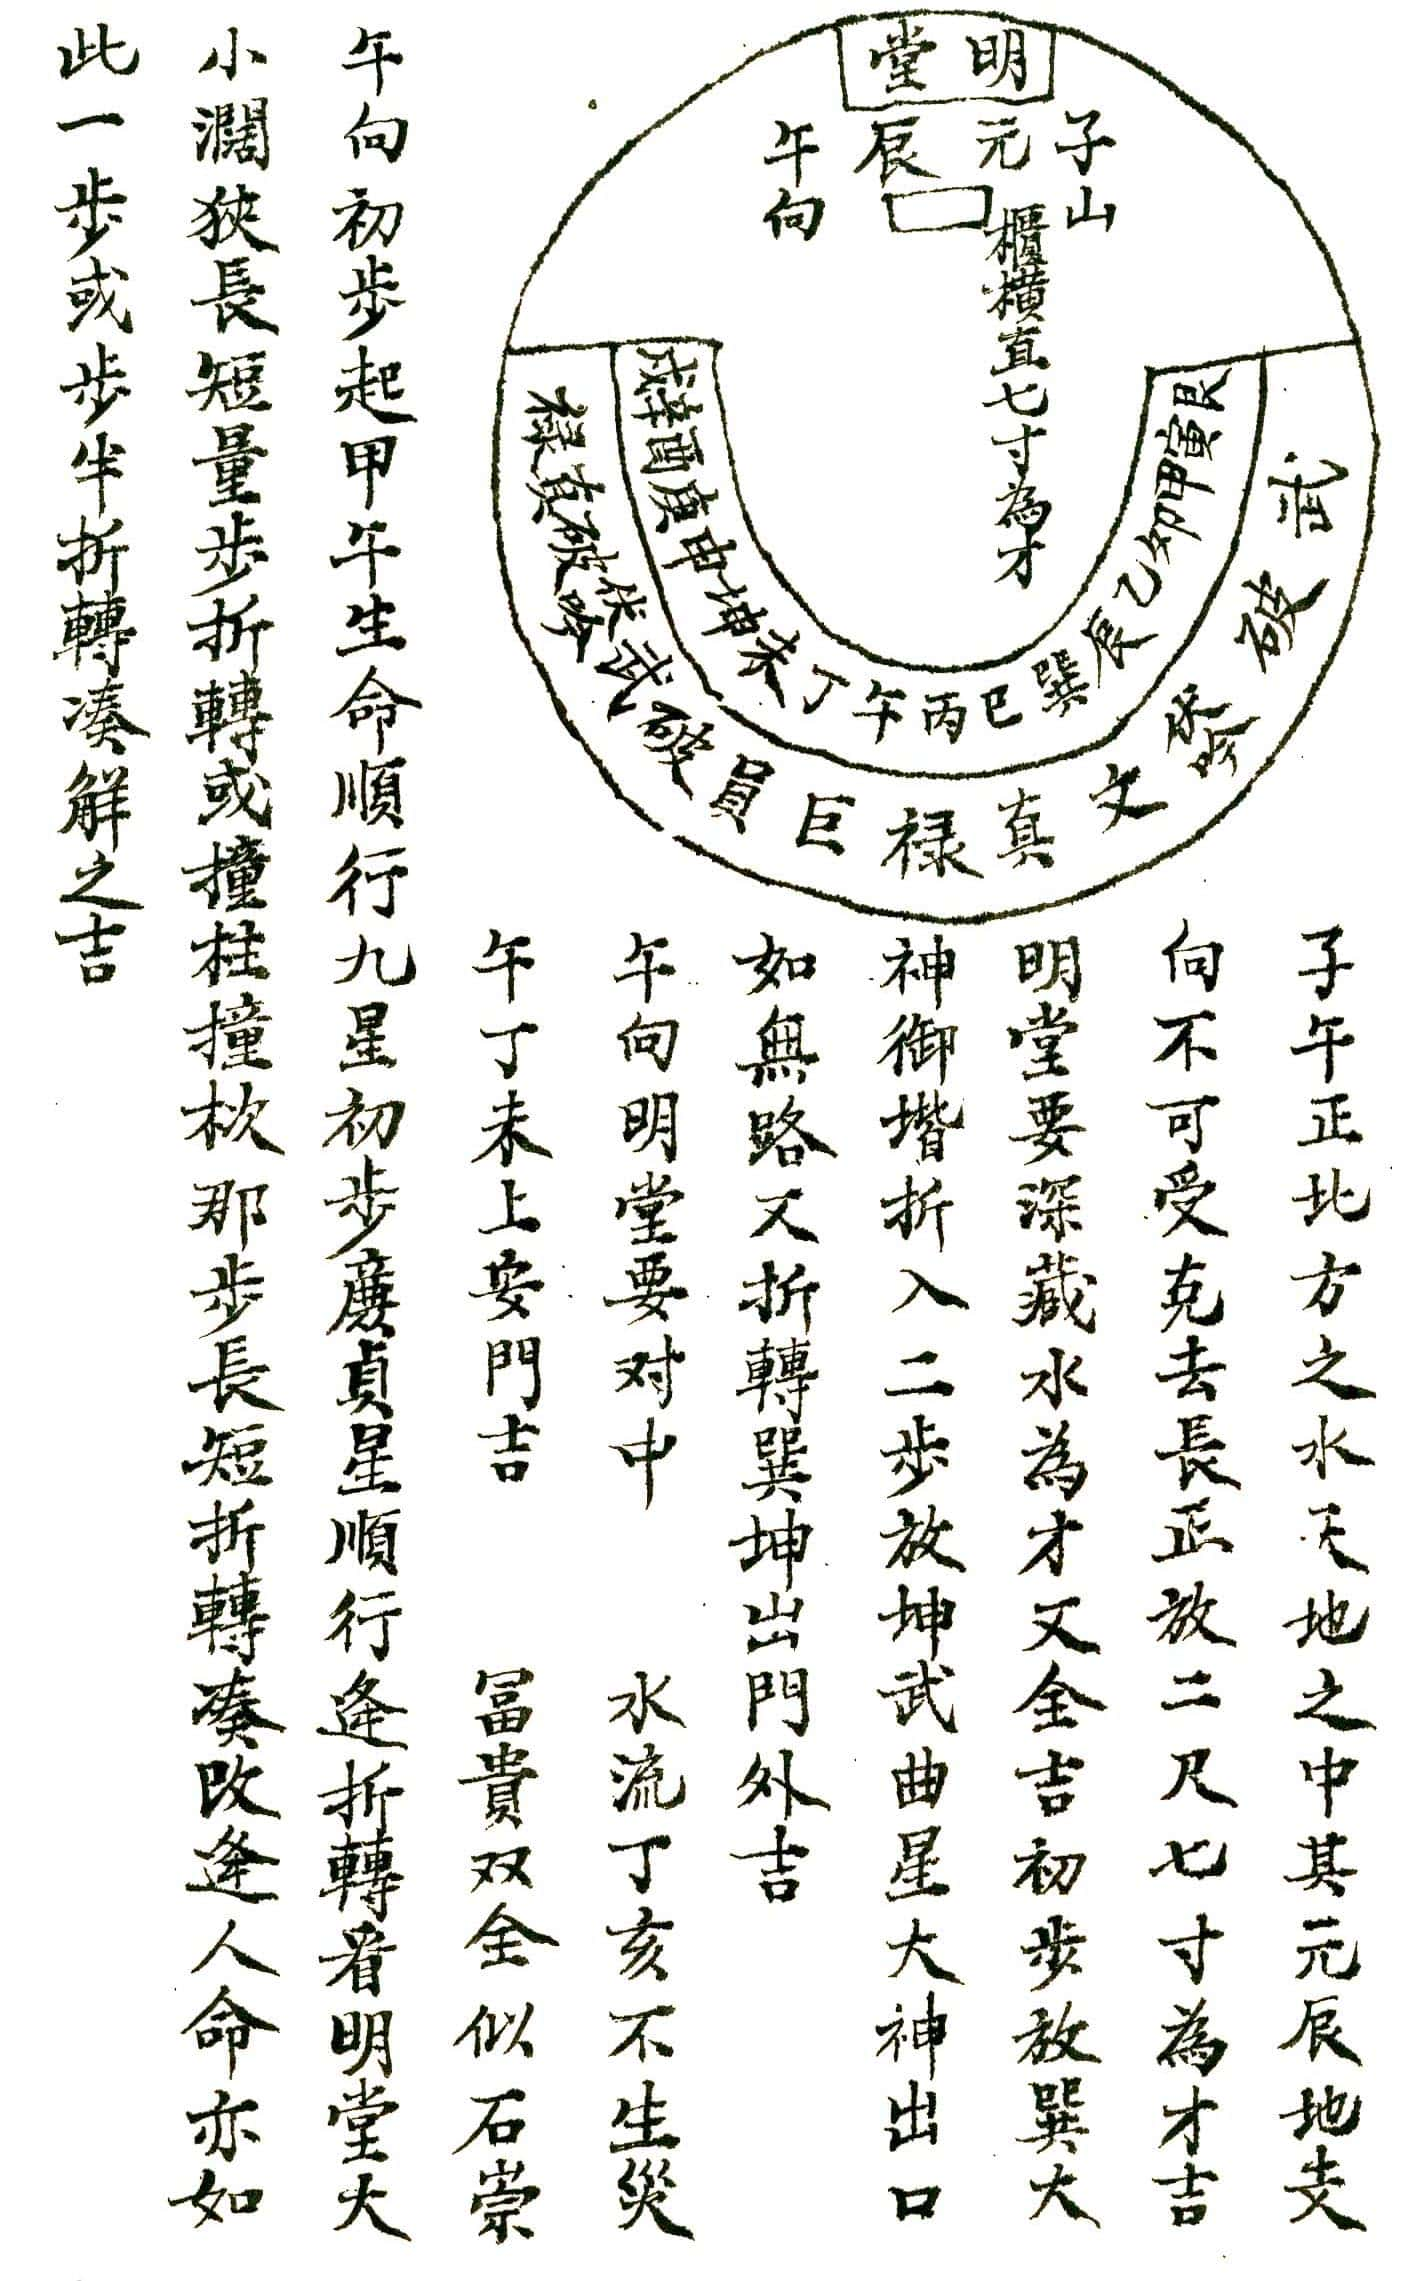 明堂
子山
元辰
午向
櫃橫直七寸為才
艮寅甲卯乙辰巽巳丙午丁未坤申庚酉辛戌
武破文真禄巨員破武伏吟破貞禄
子午正北方之水天地之中其元辰地支
向不可受克去長正放二尺七寸為才吉
明堂要深藏水為才又全吉初步放巽大
神御堦折入二步放坤武曲星大神出口
如無路又折轉巽坤出門外吉
午向明堂要对中
水流丁亥不生災
午丁未上安門吉
冨貴双全似石崇
午向初步起甲午生命順行九星初步廉貞星順行逢折轉看明堂大
小濶狹長短量步折轉或撞柱撞栨那步長短折轉凑改逢人命亦如
此一步或步步半折轉凑解之吉